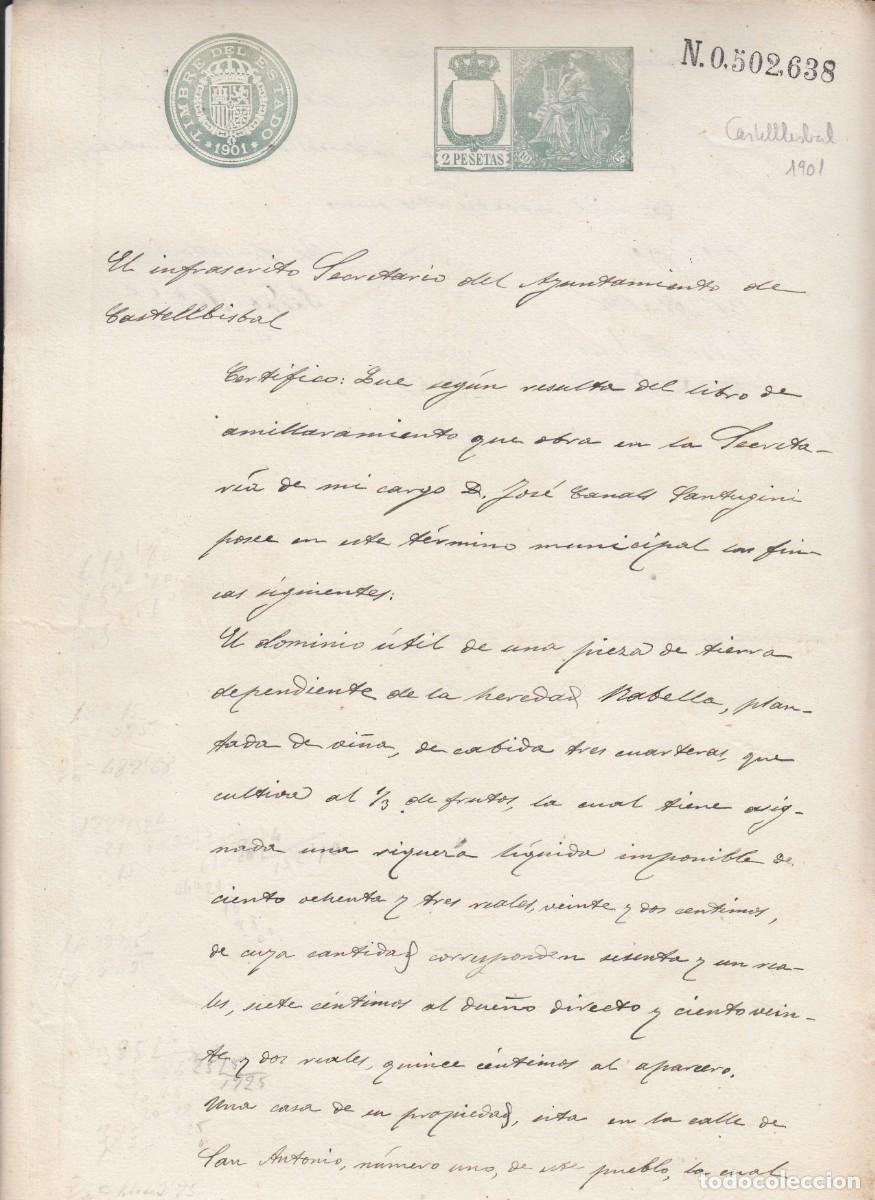 TIMBRE DEL ESTADO
*1901*
2 PESETAS
N.0,502,638
Castelllesbal
1901
El infrascrito Secretario del Ayuntamiento de
Castellbisbal
Certifico: Que según resulta del libro de
amillaramiento que obra en la Secreta-
ría de mi cargo D. José Canals Santugini
posee en este término municipal las fin-
cas siguientes:
El dominio útil de una pieza de tierra
dependiente de la heredad Rabella, plan-
tada de viña, de cabida tres cuarteras, que
cultiva al 1/3 de frutos, la cual tiene asig-
nada una riqueza líquida imponible de
ciento ochenta y tres reales, veinte y dos centimos,
de cuya cantidad corresponden sesenta y un rea-
les, siete céntimos al dueño directo y ciento vein-
te y dos reales, quince céntimos al aparcero.
2525
1725
Una casa de su propiedad, sita en la calle de
San Antonio, número uno, de este pueblo, la cual
todocoleccion